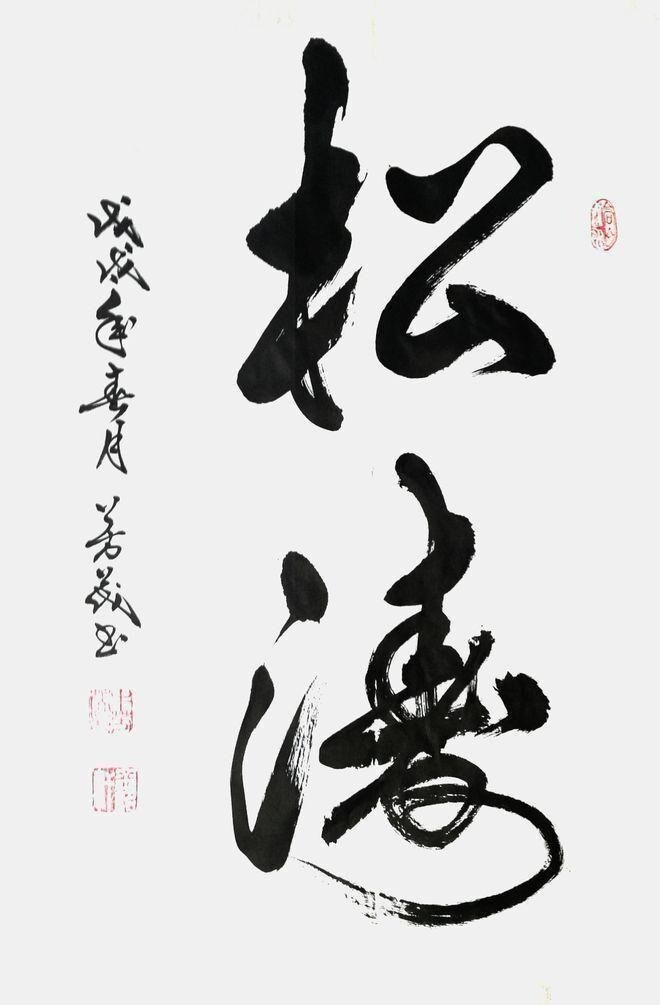 松涛
戊戌年春月 芳義书